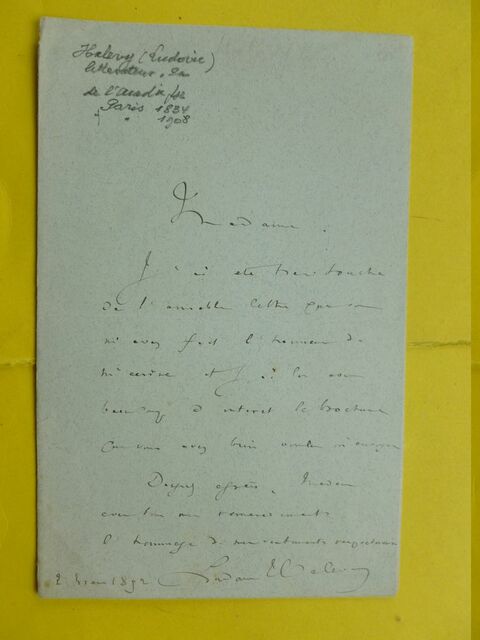 Halevy (Ludovic)
litterateur.
de l'Acadie fse
Paris 1834
" 1908
Madame,
J'ai été très touché
de l'aimable lettre que vous
m'avez fait l'honneur de
m'écrire et j'ai lu avec
beaucoup d'intérêt la brochure
que vous avez bien voulu m'envoyer
Daignez agréer, Madame
avec tous mes remerciements
l'hommage de mes sentiments respectueux
Ludovic Halevy
2 1892